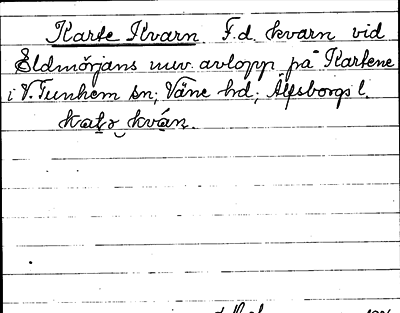 Karte Kvarn. F.d. kvarn vid
Eldmörjans nuv. avlopp på Kartene
i V. Tunhem sn; Väne hd; Älfsborgs l.